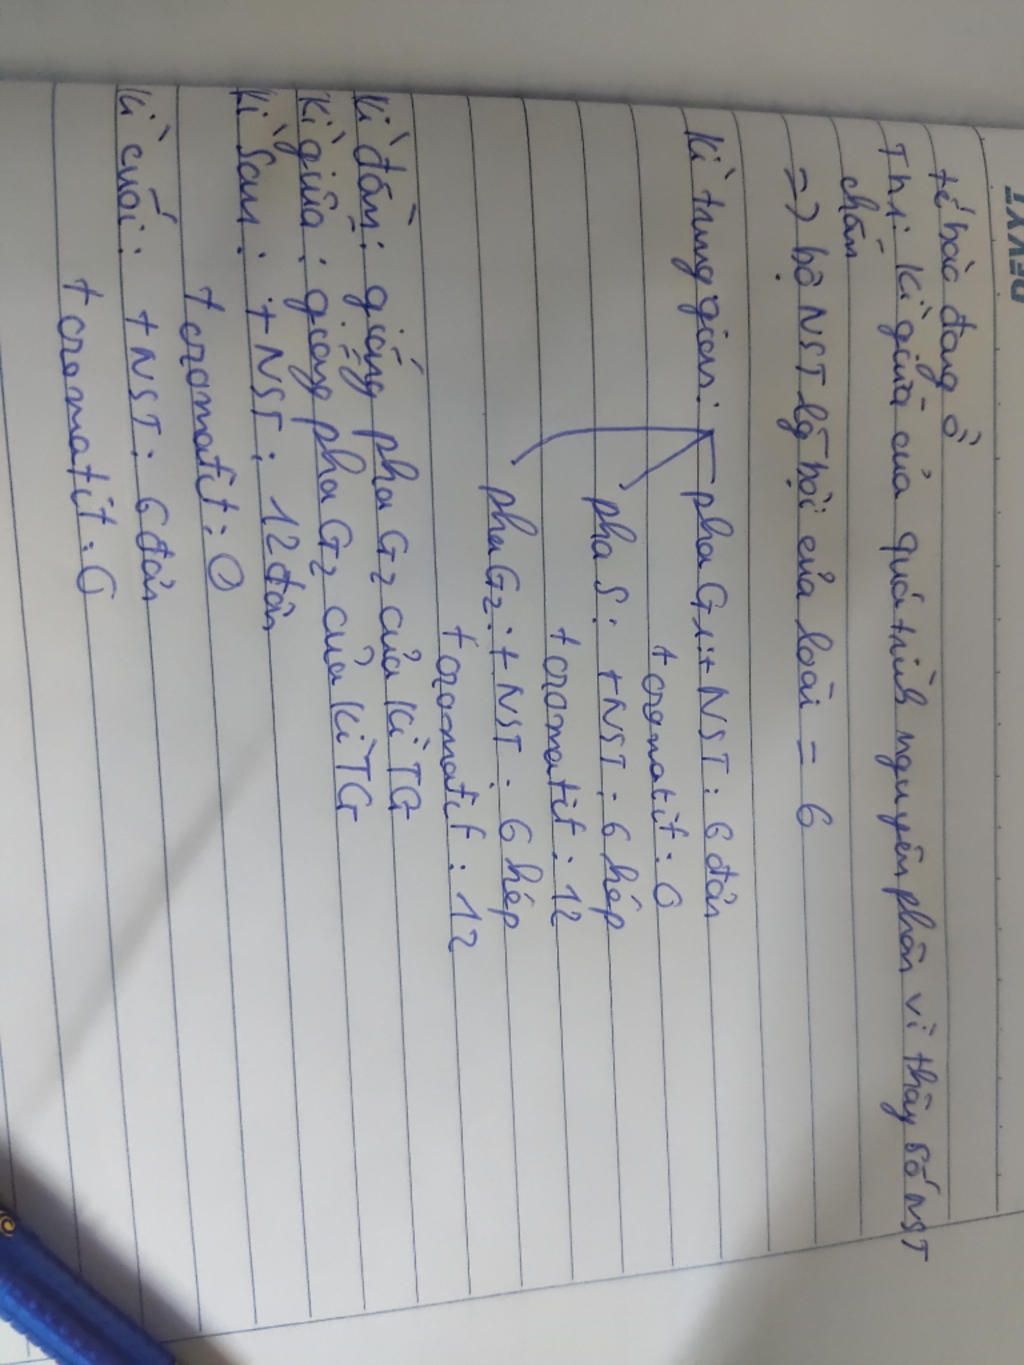 DEVYT
tế bào đang ở
TH1: Kì giữa của quá trình nguyên phân vì thấy số NST
chẵn
=> bộ NST lưỡng bội của loài = 6
Kì trung gian: pha G1: + NST: 6 đơn
+ cromatit: 0
pha S: + NST: 6 kép
+ cromatit: 12
pha G2: + NST: 6 kép
+ cromatit: 12
Kì đầu: giống pha G2 của kì TG
Kì giữa: giống pha G2 của kì TG
Kì Sau: + NST: 12 đơn
+ cromatit: 0
Kì cuối: + NST: 6 đơn
+ cromatit: 0